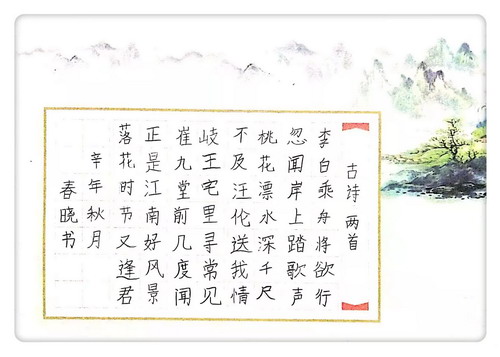 古诗两首
李白乘舟将欲行
忽闻岸上踏歌声
桃花漂水深千尺
不及汪伦送我情
岐王宅里寻常见
崔九堂前几度闻
正是江南好风景
落花时节又逢君
辛年秋月
春晚书